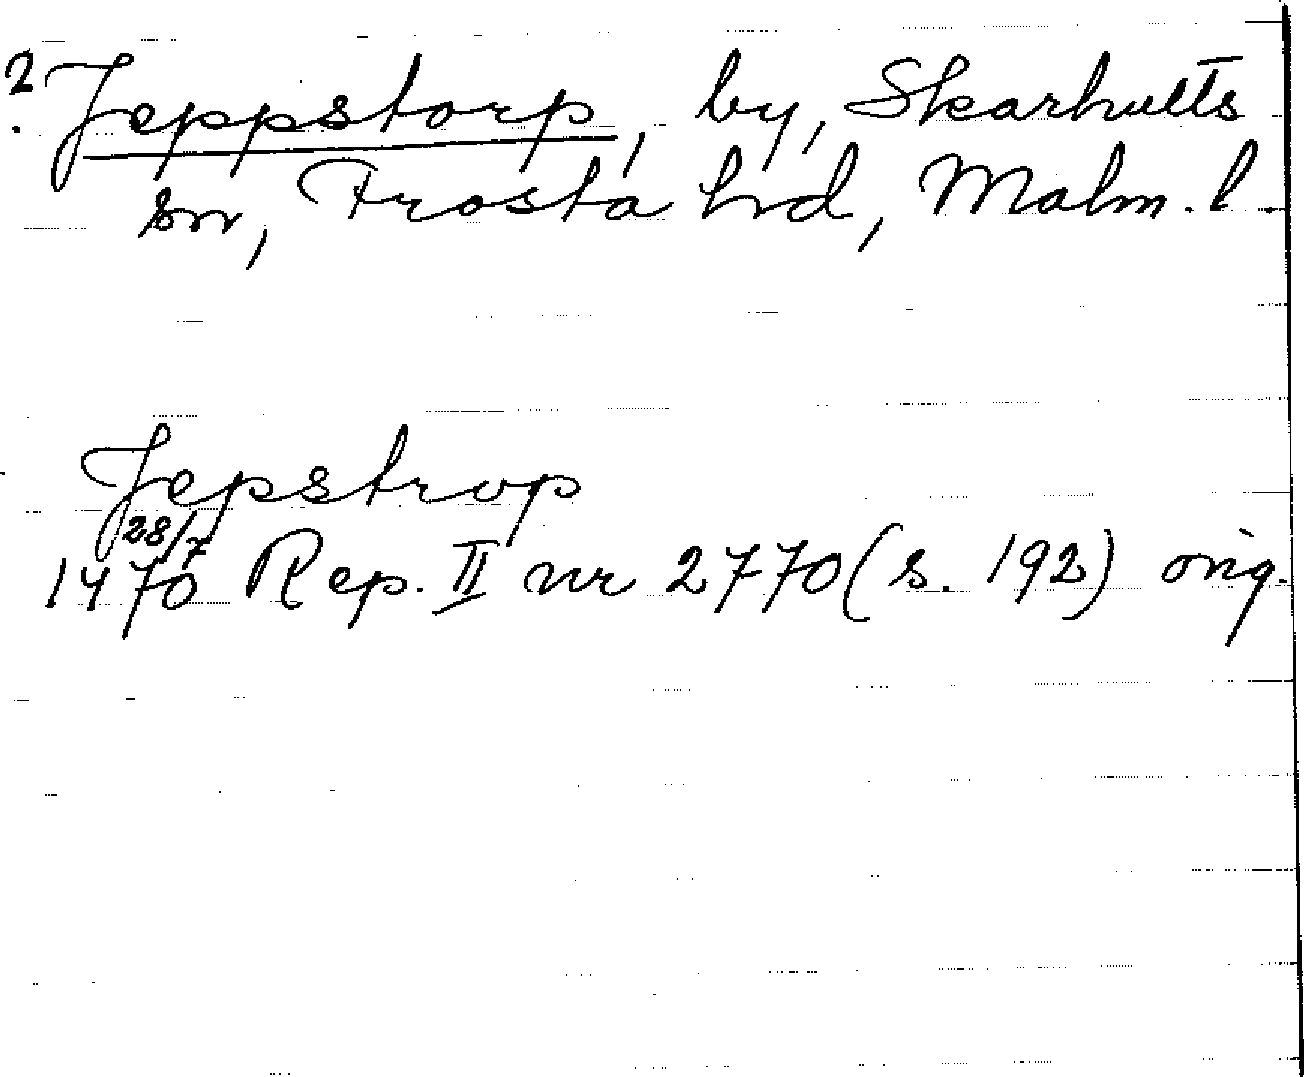 ? Jeppstorp, by, Skarhults
sn, Frosta hrd, Malm. l.
Jepstrop
28/7
1470 Rep. II nr 2770 (s. 192) orig.